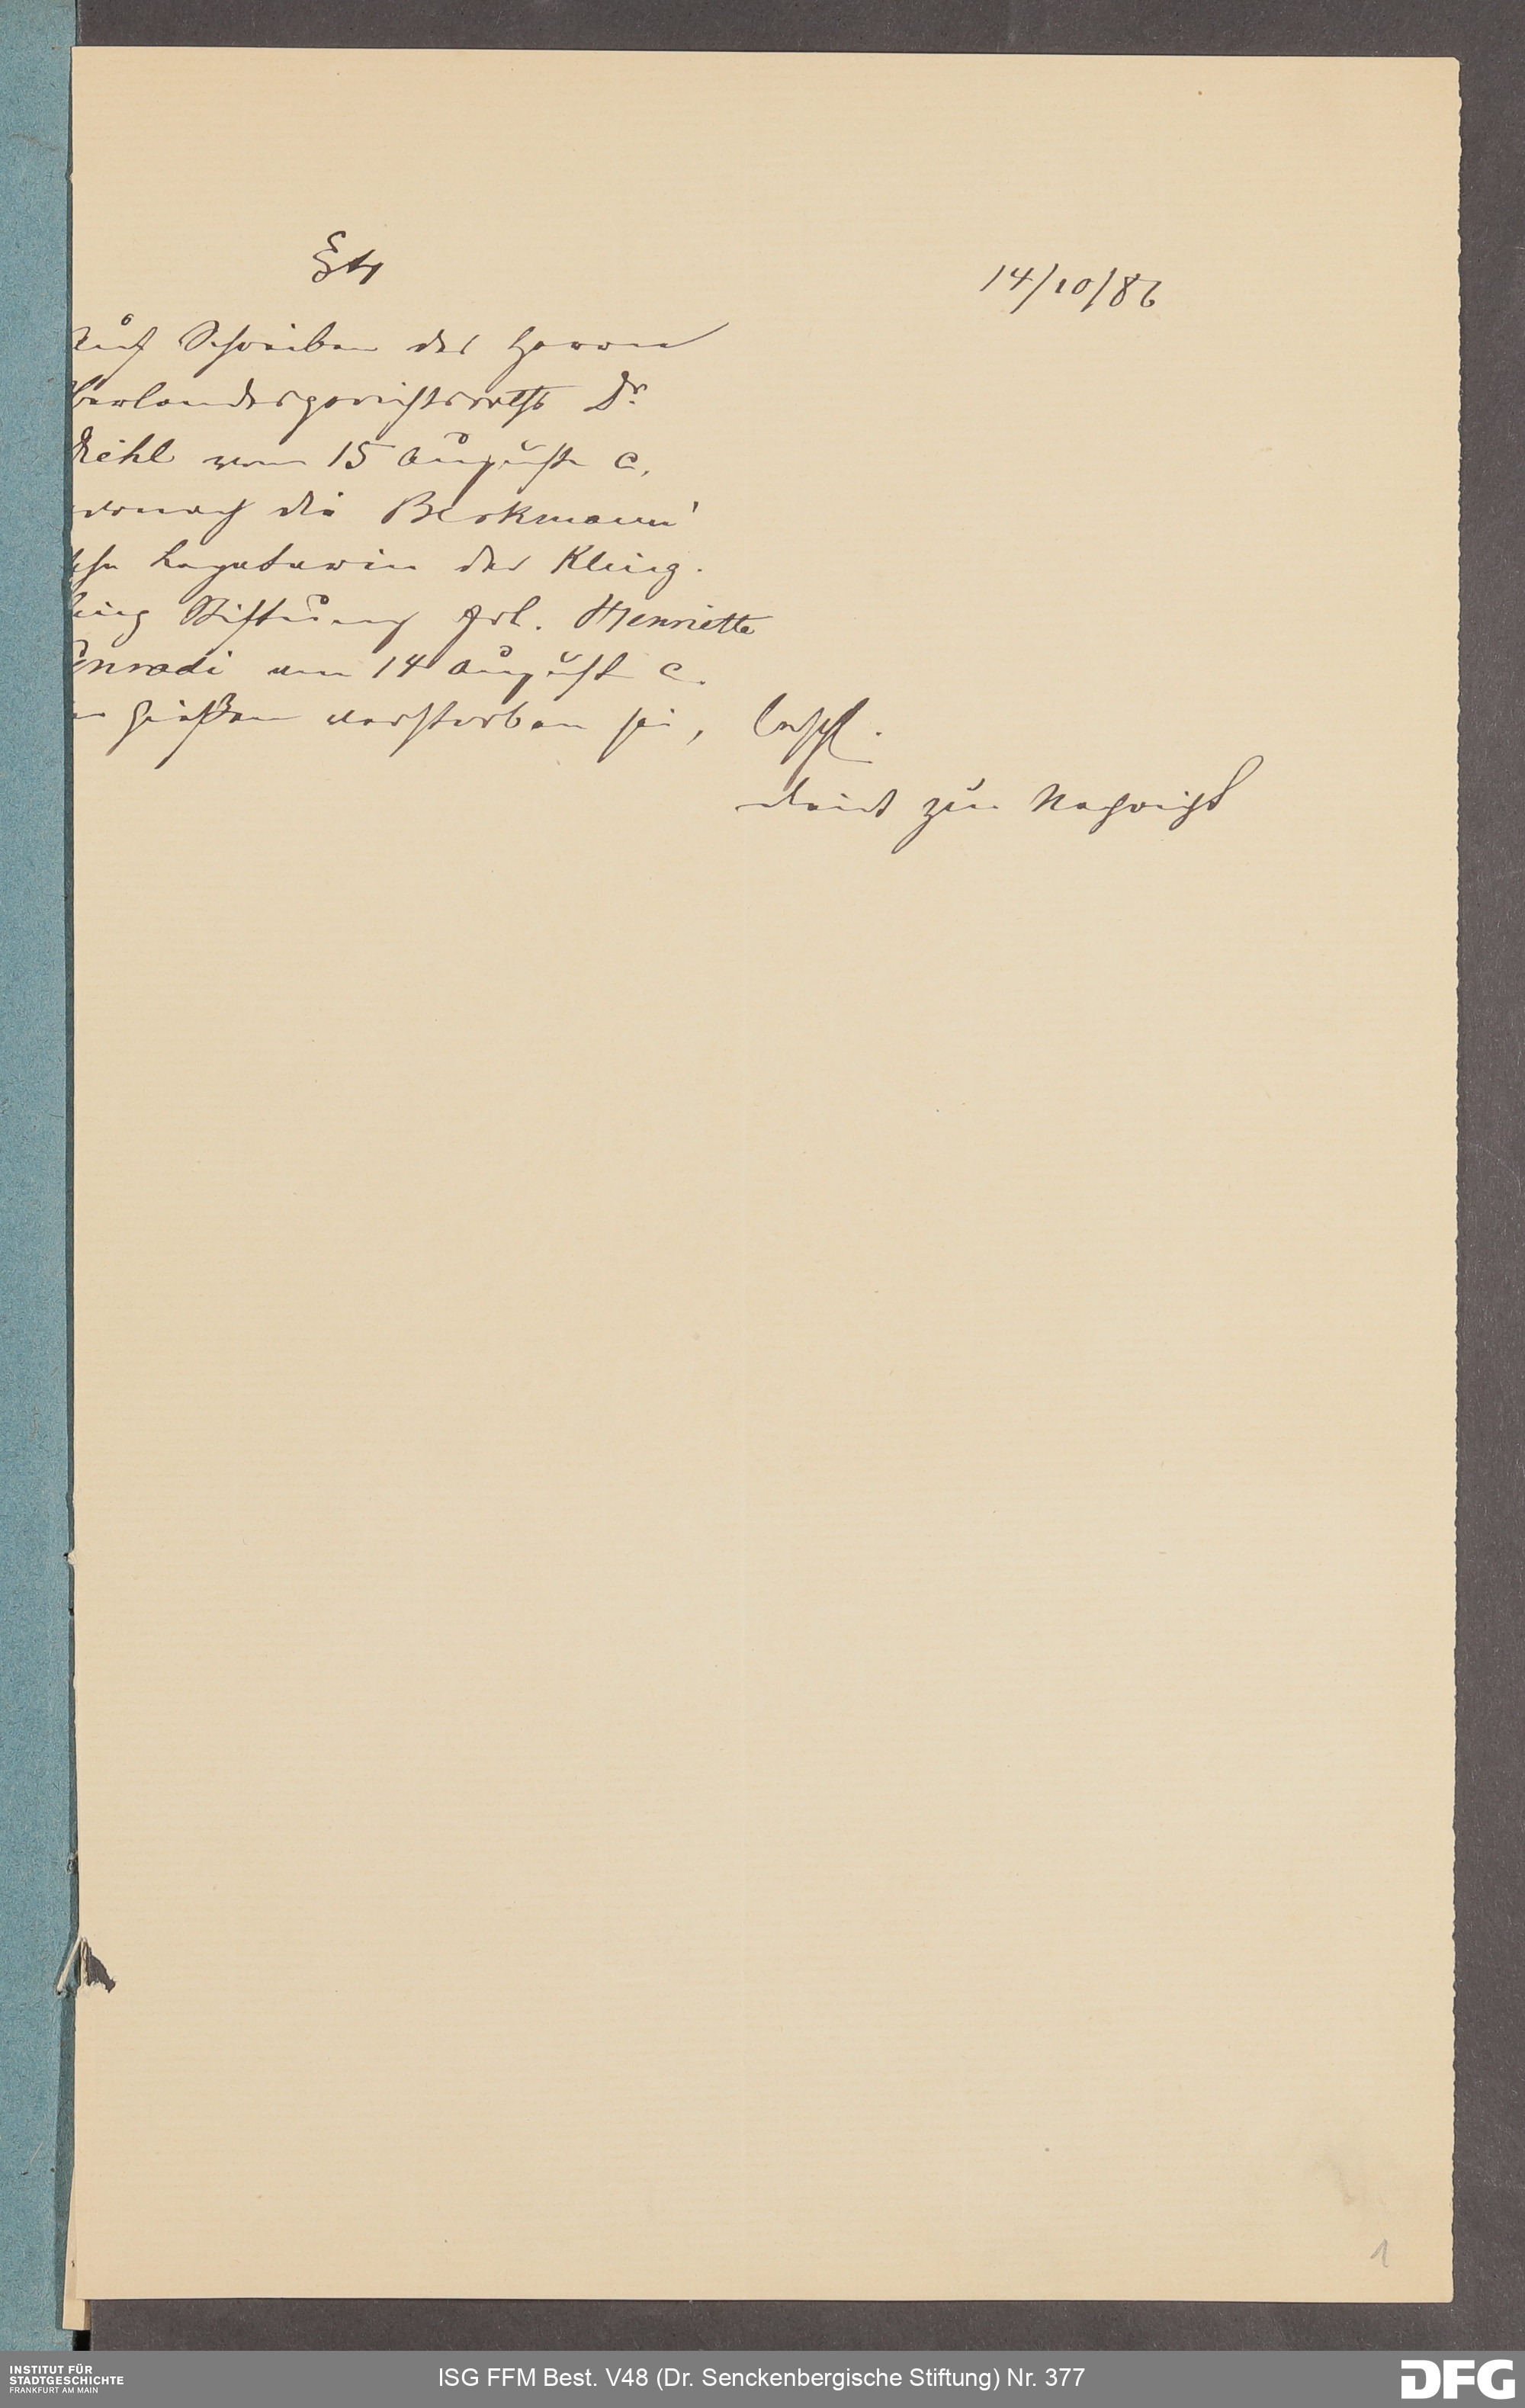 § 4
14/10/86
Auf Schreiben des Herrn
Oberlandesgerichtsrath Dr.
Diehl vom 15 August c.
wonach die Berkmann'
sche Legatarin der Kling
ling Stiftung Frl. Henriette
Conradi am 14 August c.
in Gießen verstorben sei,
dient zur Nachricht
1
INSTITUT FÜR
STADTGESCHICHTE
FRANKFURT AM MAIN
ISG FFM Best. V48 (Dr. Senckenbergische Stiftung) Nr. 377
DFG